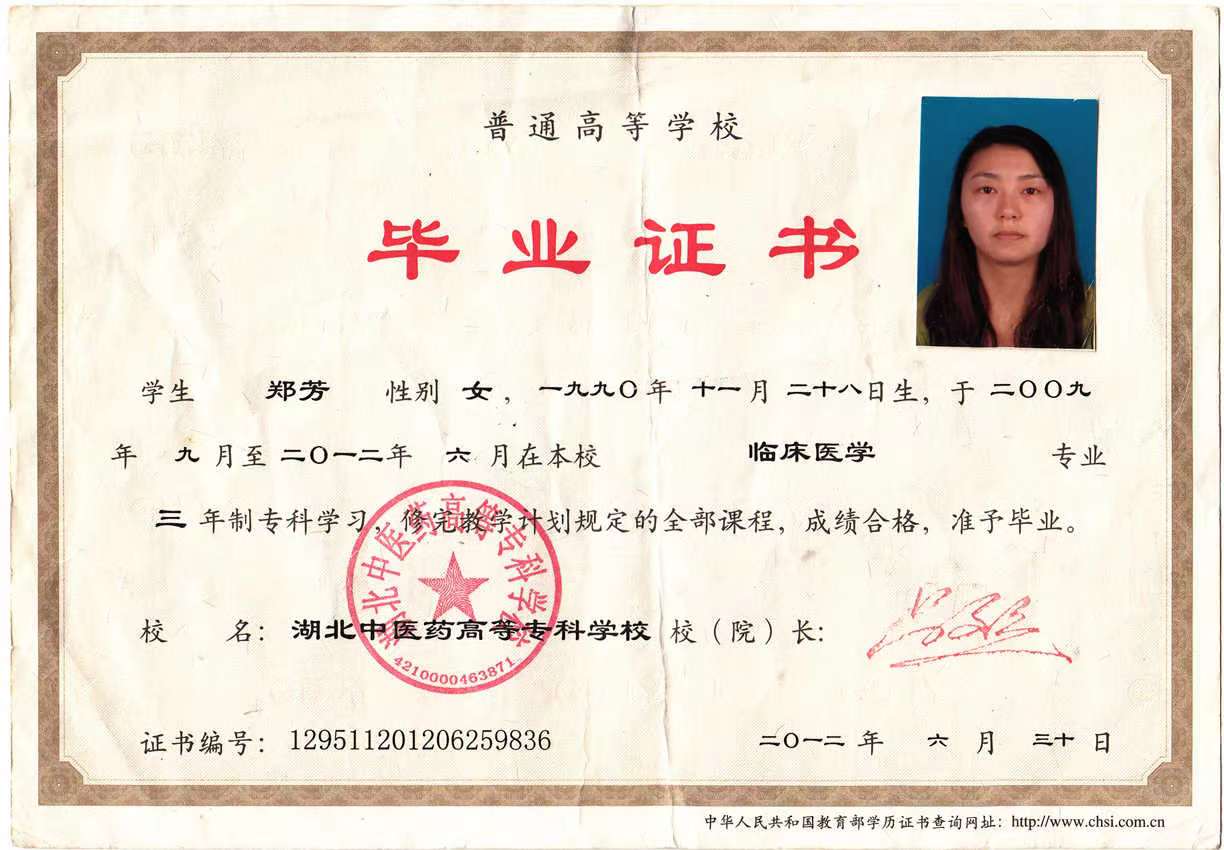 普通高等学校
毕业证书
学生 郑芳 性别 女，一九九〇年 十一月 二十八日生，于 二〇〇九
年 九 月至 二〇一二年 六 月在本校 临床医学 专业
三 年制专科学习，修完教学计划规定的全部课程，成绩合格，准予毕业。
湖北中医药高等专科学校
4210000463871
校 名：湖北中医药高等专科学校 校（院）长：
证书编号：129511201206259836 二〇一二 年 六 月 三十 日
中华人民共和国教育部学历证书查询网址：http://www.chsi.com.cn